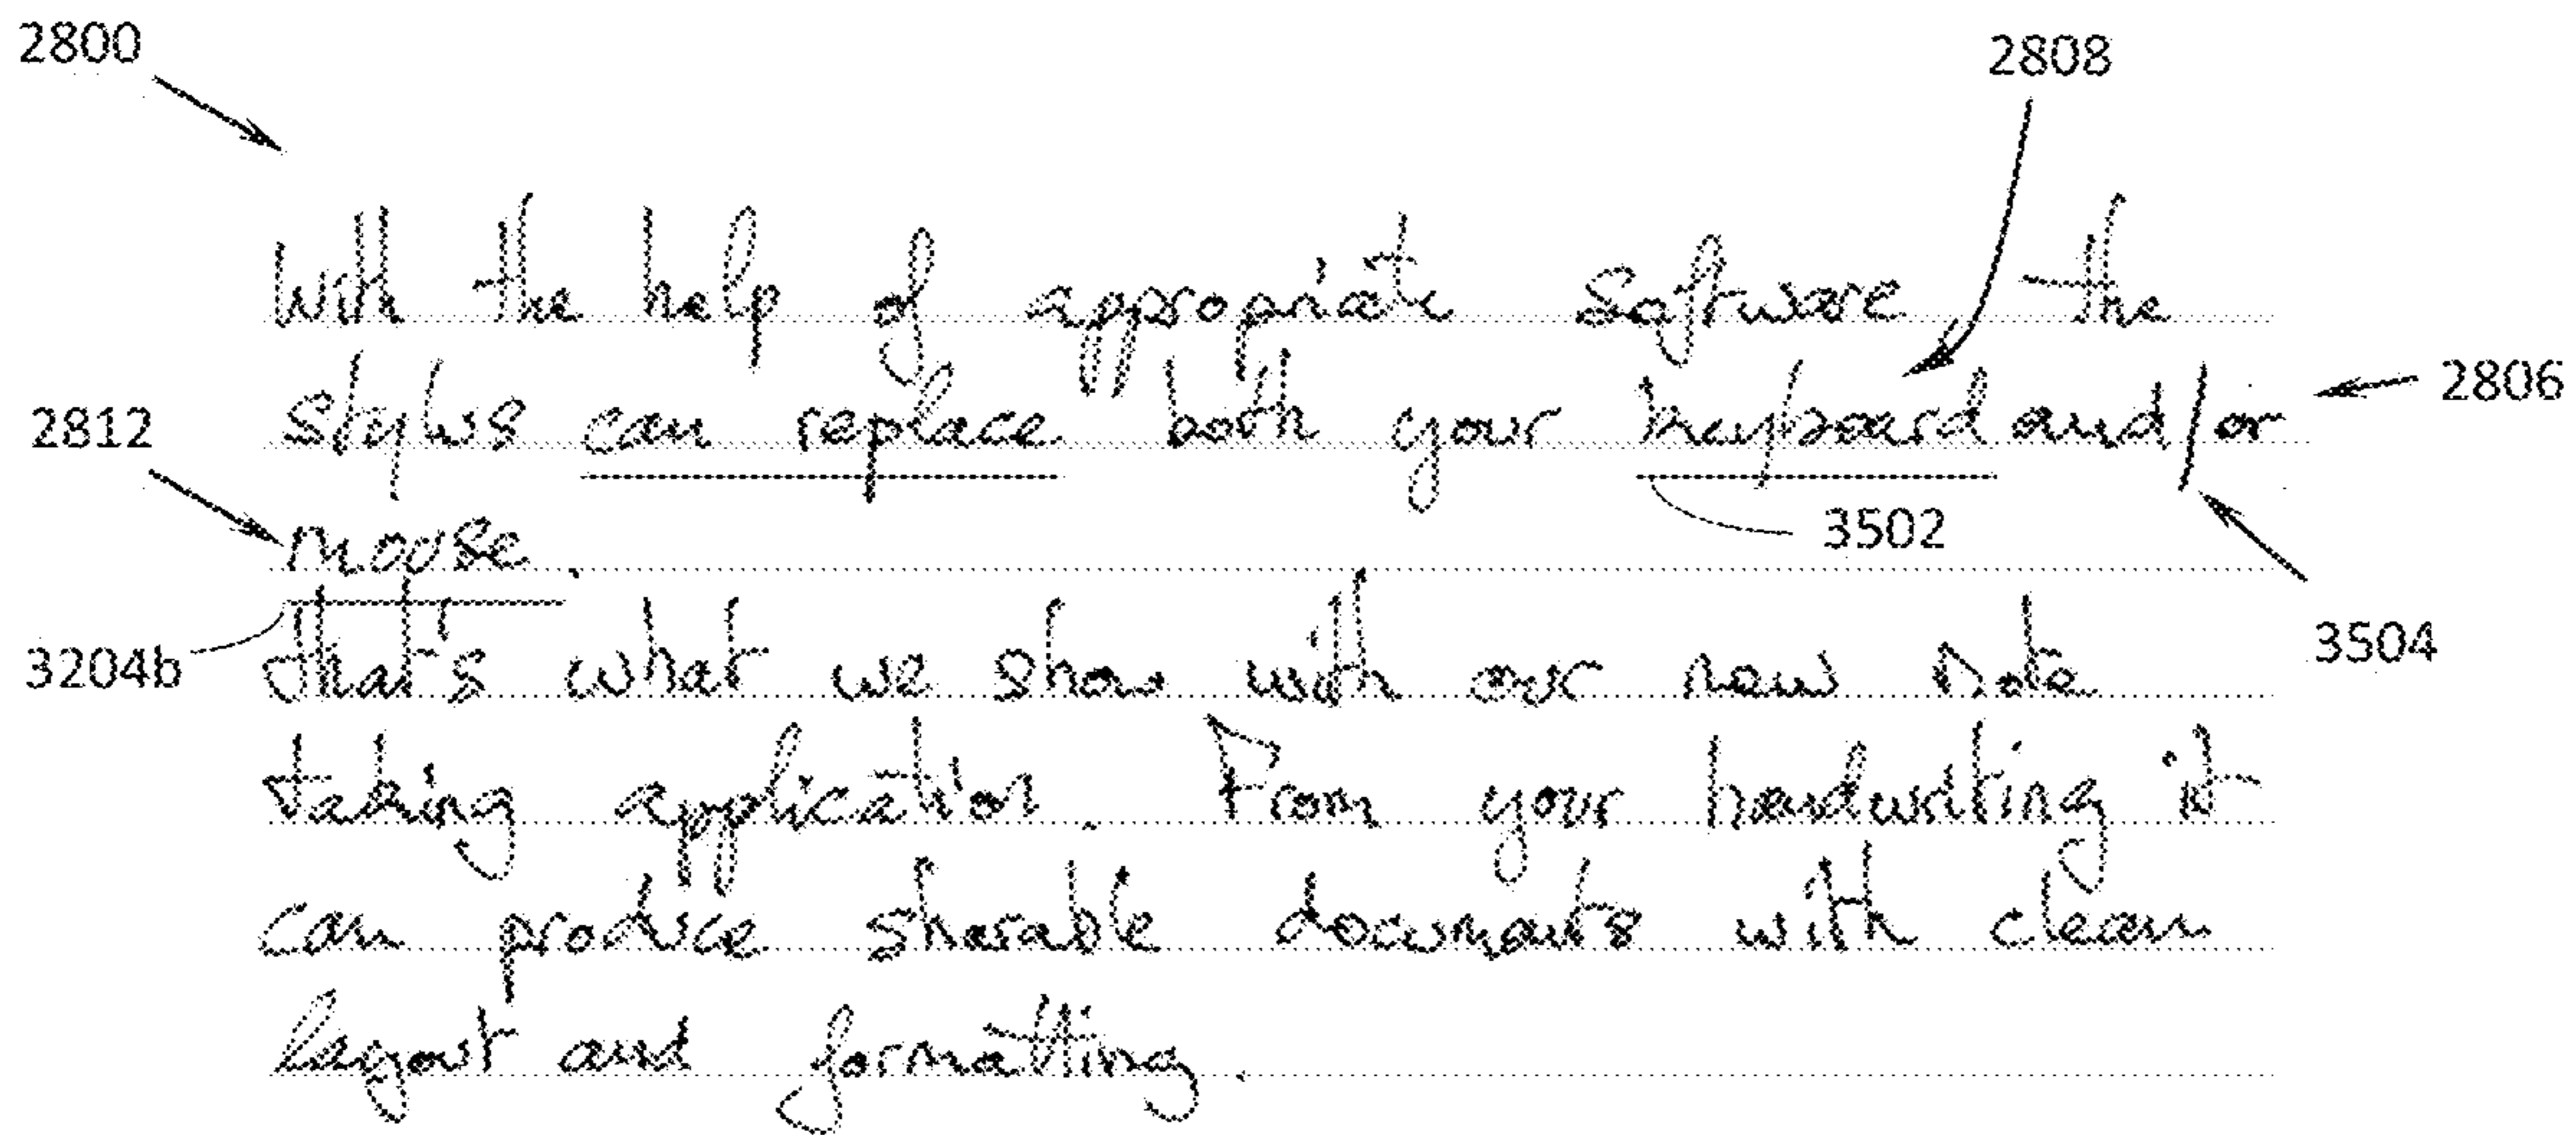 2800
2808
With the help of appropriate software the
stylus can replace both your keyboard and/or
2806
2812
3502
mouse.
3504
3204b
that's what we show with our new note
taking application. From your handwriting it
can produce sharable documents with clean
layout and formatting.